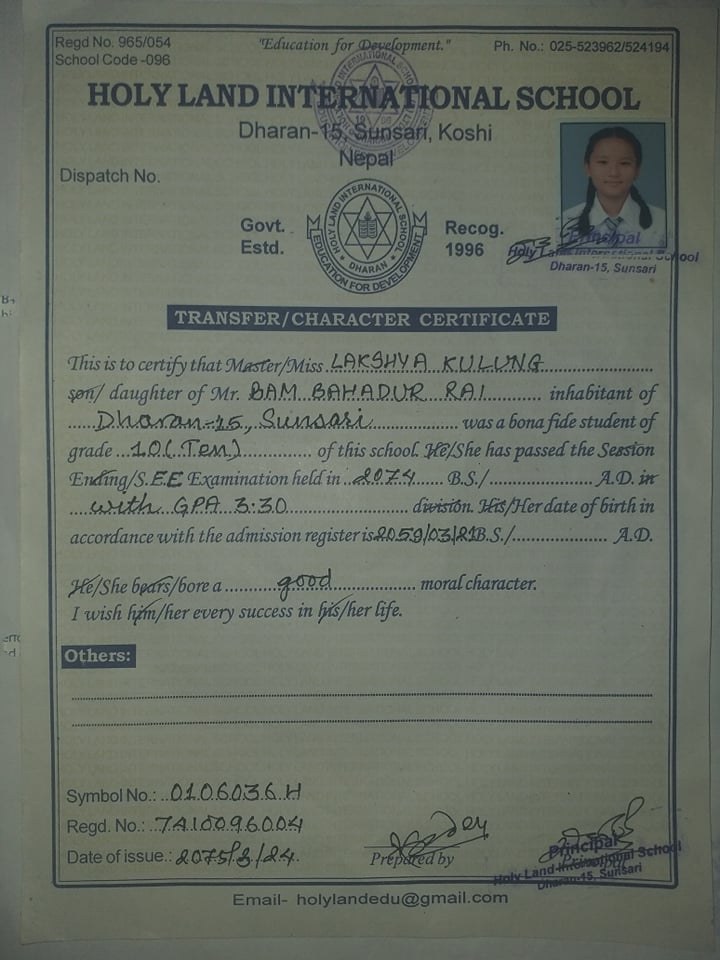 Regd No. 965/054
"Education for Development."
Ph. No.: 025-523962/524194
School Code -096
HOLY LAND INTERNATIONAL SCHOOL
Dharan-15, Sunsari, Koshi
Nepal
Dispatch No.
Govt. Recog.
Estd. 1996
HOLY LAND INTERNATIONAL SCHOOL
DHARAN
EDUCATION FOR DEVELOPMENT
Principal
Holy Land International School
Dharan-15, Sunsari
TRANSFER/CHARACTER CERTIFICATE
This is to certify that Master/Miss LAKSHYA KULUNG
son/ daughter of Mr. BAM BAHADUR RAI inhabitant of
Dharan-15, Sunsari was a bona fide student of
grade 10 (Ten) of this school. He/She has passed the Session
Ending/S.EE Examination held in 2074 B.S./ A.D. in
with GPA 3.30 division. His/Her date of birth in
accordance with the admission register is 2059/03/21 B.S./ A.D.
He/She bears/bore a good moral character.
I wish him/her every success in his/her life.
Others:
Symbol No.: 0106036 H
Regd. No.: 7410096004
Date of issue.: 2075/3/24.
Prepared by
Principal
Principal
Holy Land International School
Dharan-15, Sunsari
Email- holylandedu@gmail.com